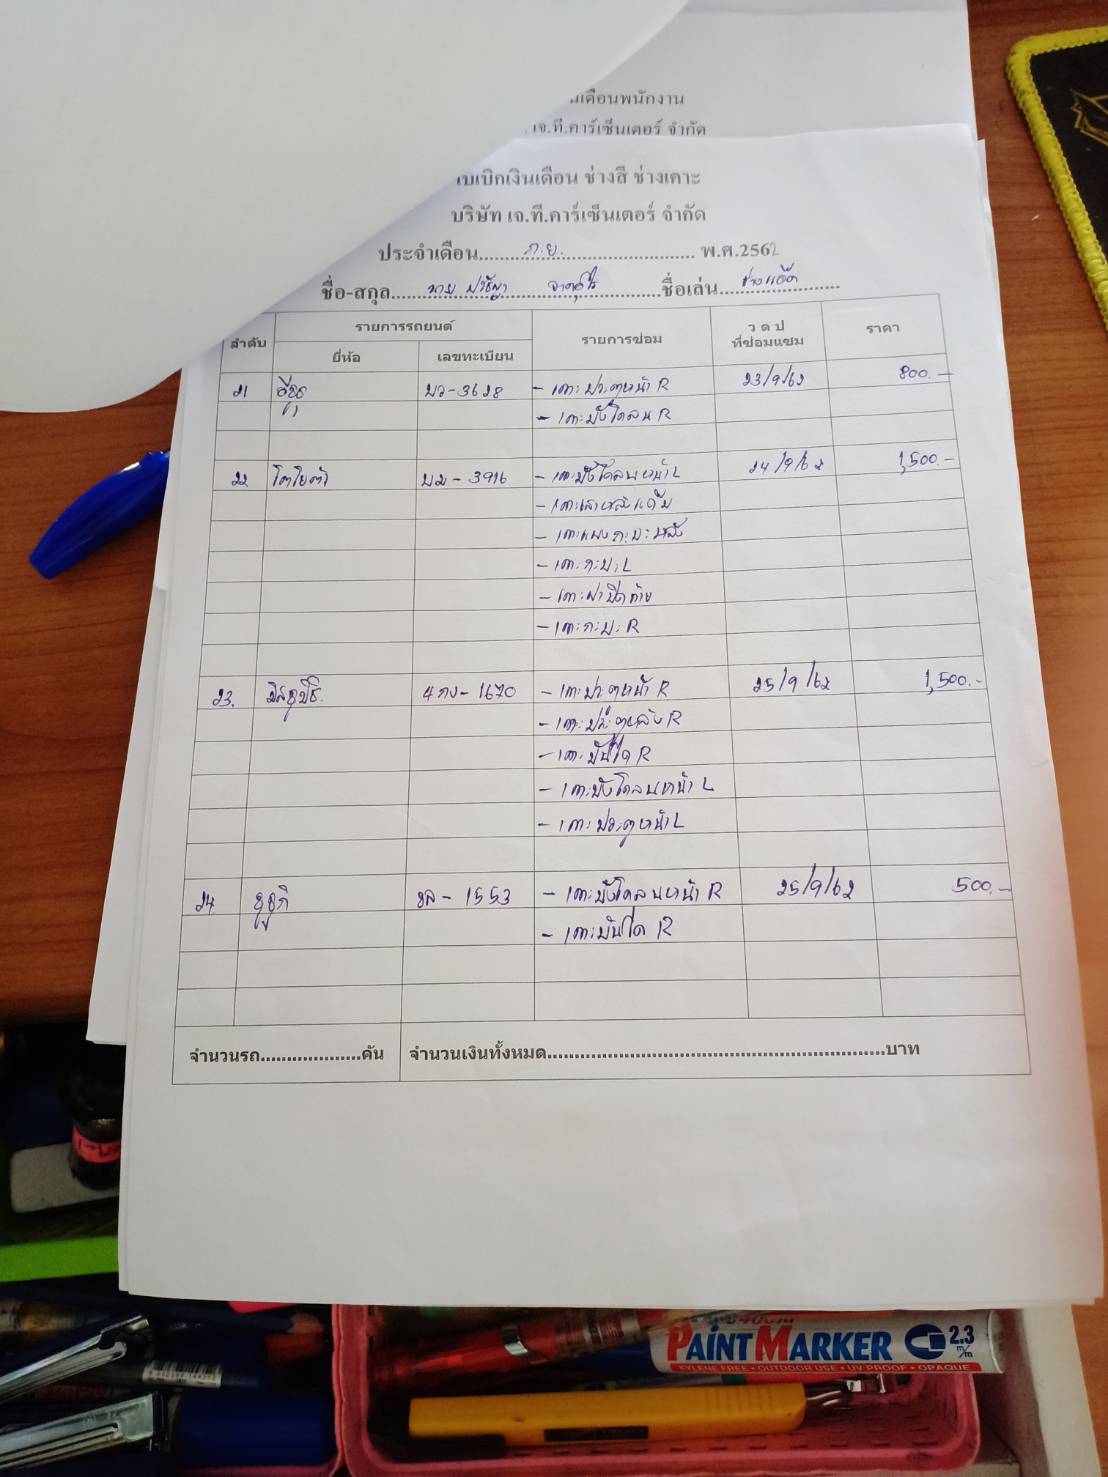 นเดือนพนักงาน
. เจ.ที.คาร์เซ็นเตอร์ จำกัด
ใบเบิกเงินเดือน ช่างสี ช่างเคาะ
บริษัท เจ.ที.คาร์เซ็นเตอร์ จำกัด
ประจำเดือน ก.ย. พ.ศ.2562
ชื่อ-สกุล นาย ชื่อเล่น
ลำดับ รายการรถยนต์ รายการซ่อม ว ด ป ที่ซ่อมแซม ราคา
ยี่ห้อ เลขทะเบียน
21 อีซูซุ บว-3628 - เคาะประตูหน้า R 23/9/62 800.-
- เคาะบังโคลน R
22 โตโยต้า บม-3916 - เคาะบังโคลนหน้า L 24/9/62 1,500.-
- เคาะเสาหลังแค็บ
- เคาะแผงกะบะหลัง
- เคาะกะบะ L
- เคาะฝาปิดท้าย
- เคาะกะบะ R
23. มิตซูบิชิ 4กง-1670 - เคาะประตูหน้า R 25/9/62 1,500.-
- เคาะประตูหลัง R
- เคาะบันได R
- เคาะบังโคลนหน้า L
- เคาะประตูหน้า L
24. ซูซูกิ ขล-1553 - เคาะบังโคลนหน้า R 25/9/62 500.-
- เคาะบันได R
จำนวนรถ....................คัน จำนวนเงินทั้งหมด................................................................บาท
PAINT MARKER 2.3 m/m
XYLENE FREE • OUTDOOR USE • UV PROOF • OPAQUE